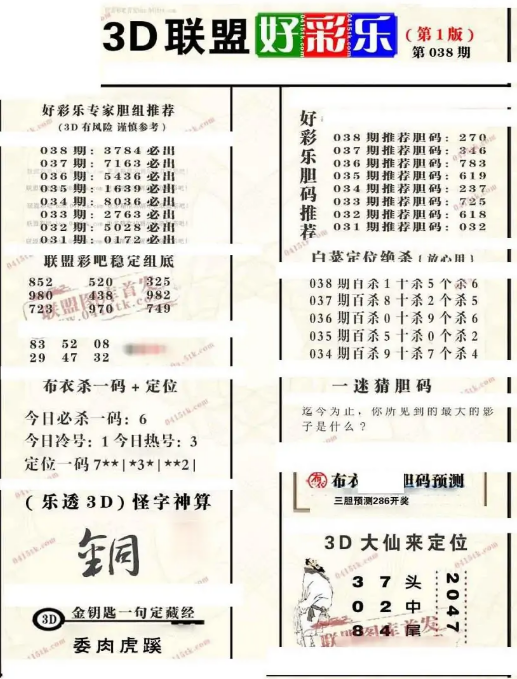 3D联盟好彩乐(第1版)
第038期
好彩乐专家胆组推荐
(3D有风险 谨慎参考)
038期：3784必出
037期：7163必出
036期：5436必出
035期：1639必出
034期：8036必出
033期：2763必出
032期：5028必出
031期：0172必出
联盟彩吧稳定组底
852 520 325
980 438 982
723 970 749
83 52 08
29 47 32
布衣杀一码+定位
今日必杀一码：6
今日冷号：1 今日热号：3
定位一码7**|*3*|**2|
(乐透3D)怪字神算
3D
金钥匙一句定藏经
委肉虎蹊
好彩乐胆码推荐
038期推荐胆码：270
037期推荐胆码：346
036期推荐胆码：783
035期推荐胆码：619
034期推荐胆码：237
033期推荐胆码：725
032期推荐胆码：618
031期推荐胆码：032
白菜定位绝杀(放心用)
038期百杀1十杀5个杀6
037期百杀8十杀2个杀5
036期百杀0十杀9个杀6
035期百杀5十杀0个杀2
034期百杀9十杀7个杀4
一迷猜胆码
迄今为止，你所见到的最大的影
子是什么？
布衣 胆码预测
三胆预测286开奖
3D大仙来定位
3 7 头
0 2 中
8 4 尾
2047
联盟图库首发
0415tk.com